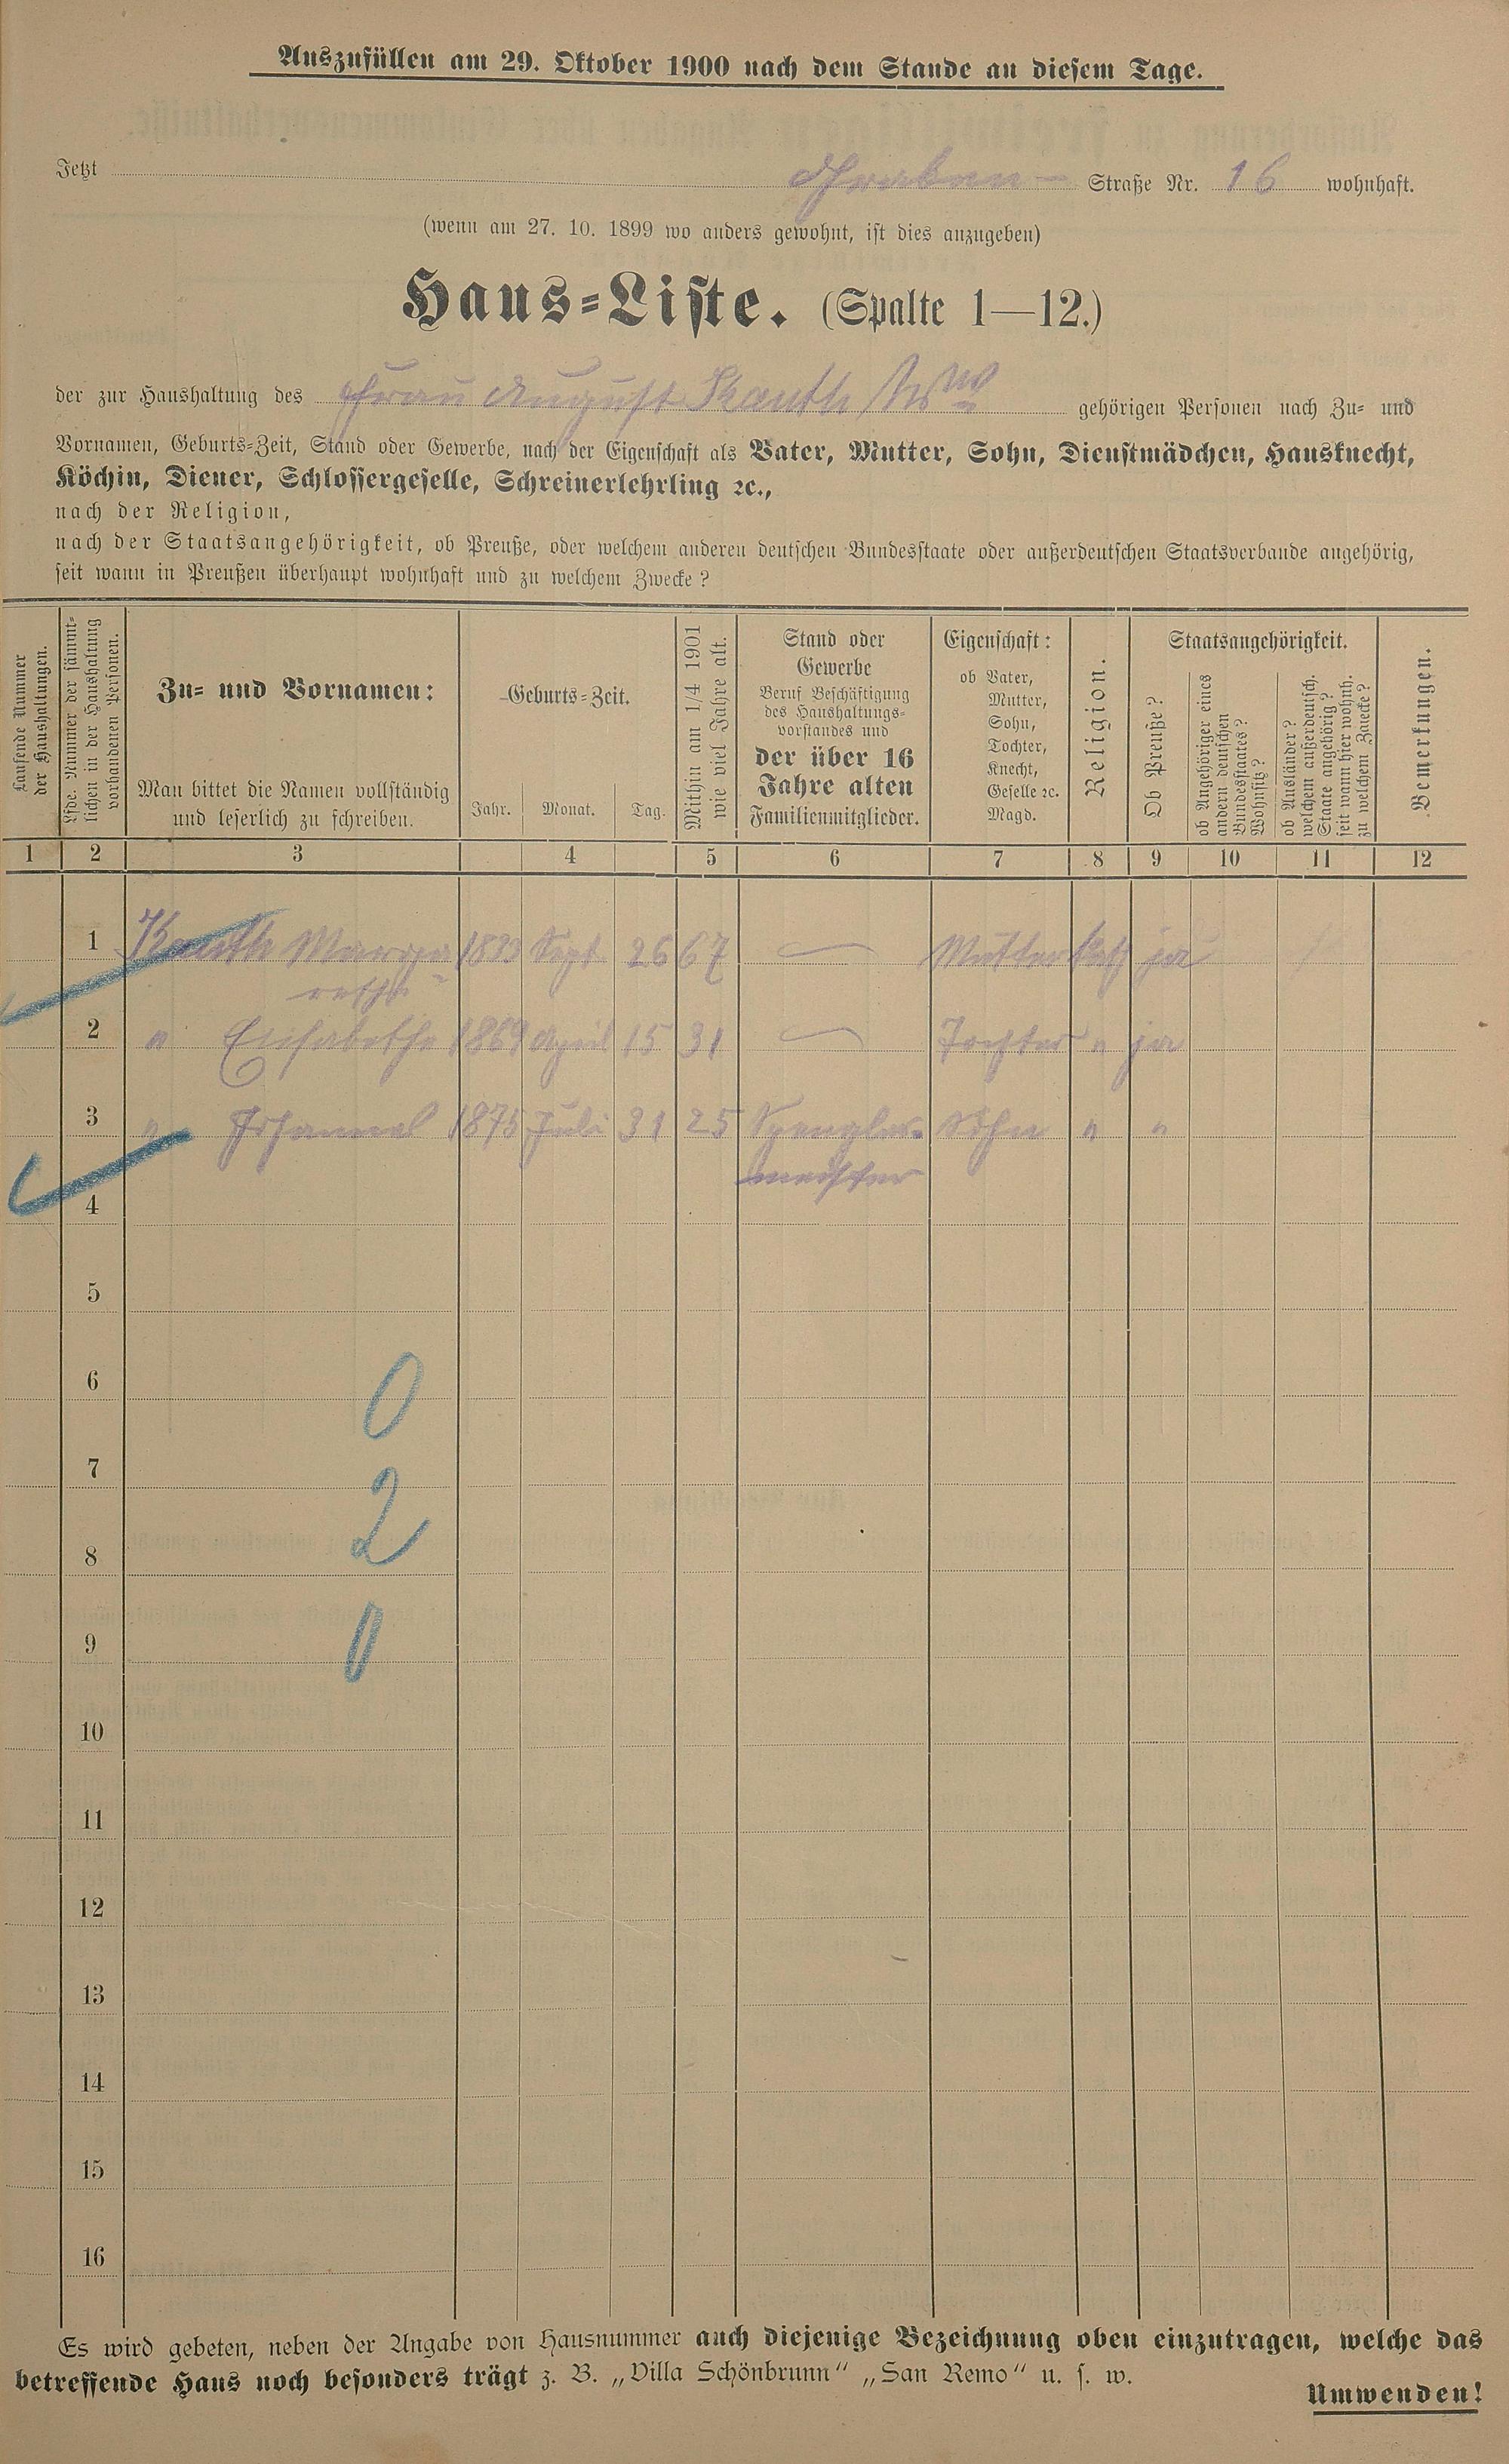 Auszufüllen am 29. Oktober 1900 nach dem Stande an diesem Tage.
Jetzt Graben- Straße Nr. 16 wohnhaft.
(wenn am 27. 10. 1899 wo anders gewohnt, ist dies anzugeben)
Haus-Liste. (Spalte 1—12.)
der zur Haushaltung des Frau August Kauth Ww gehörigen Personen nach Zu- und
Vornamen, Geburts-Zeit, Stand oder Gewerbe, nach der Eigenschaft als Vater, Mutter, Sohn, Dienstmädchen, Hausknecht,
Köchin, Diener, Schlossergeselle, Schreinerlehrling ꝛc.,
nach der Religion,
nach der Staatsangehörigkeit, ob Preuße, oder welchem anderen deutschen Bundesstaate oder außerdeutschen Staatsverbande angehörig,
seit wann in Preußen überhaupt wohnhaft und zu welchem Zwecke?
Laufende Nummer
der Haushaltungen.
Lfde. Nummer der sämmt-
lichen in der Haushaltung
vorhandenen Personen.
Zu- und Vornamen:
Man bittet die Namen vollständig
und leserlich zu schreiben.
Geburts-Zeit.
Jahr. Monat. Tag.
Mithin am 1/4 1901
wie viel Jahre alt.
Stand oder
Gewerbe
Beruf Beschäftigung
des Haushaltungs-
vorstandes und
der über 16
Jahre alten
Familienmitglieder.
Eigenschaft:
ob Vater,
Mutter,
Sohn,
Tochter,
Knecht,
Geselle ꝛc.
Magd.
Religion.
Staatsangehörigkeit.
Ob Preuße?
ob Angehöriger eines
andern deutschen
Bundesstaates?
Wohnsitz?
ob Ausländer?
welchem außerdeutsch.
Staate angehörig?
seit wann hier wohnh.
zu welchem Zwecke?
Bemerkungen.
1 2 3 4 5 6 7 8 9 10 11 12
1 Kauth Marga- 1833 Sept. 26 67 — Mutter kath ja
retha
2 " Elisabethe 1869 April 15 31 — Tochter " ja
3 " Johannes 1875 Juli 31 25 Spengler- Sohn " "
meister
4
5
6
0
7
2
8
9
0
10
11
12
13
14
15
16
Es wird gebeten, neben der Angabe von Hausnummer auch diejenige Bezeichnung oben einzutragen, welche das
betreffende Haus noch besonders trägt z. B. „Villa Schönbrunn" „San Remo" u. s. w.
Umwenden!